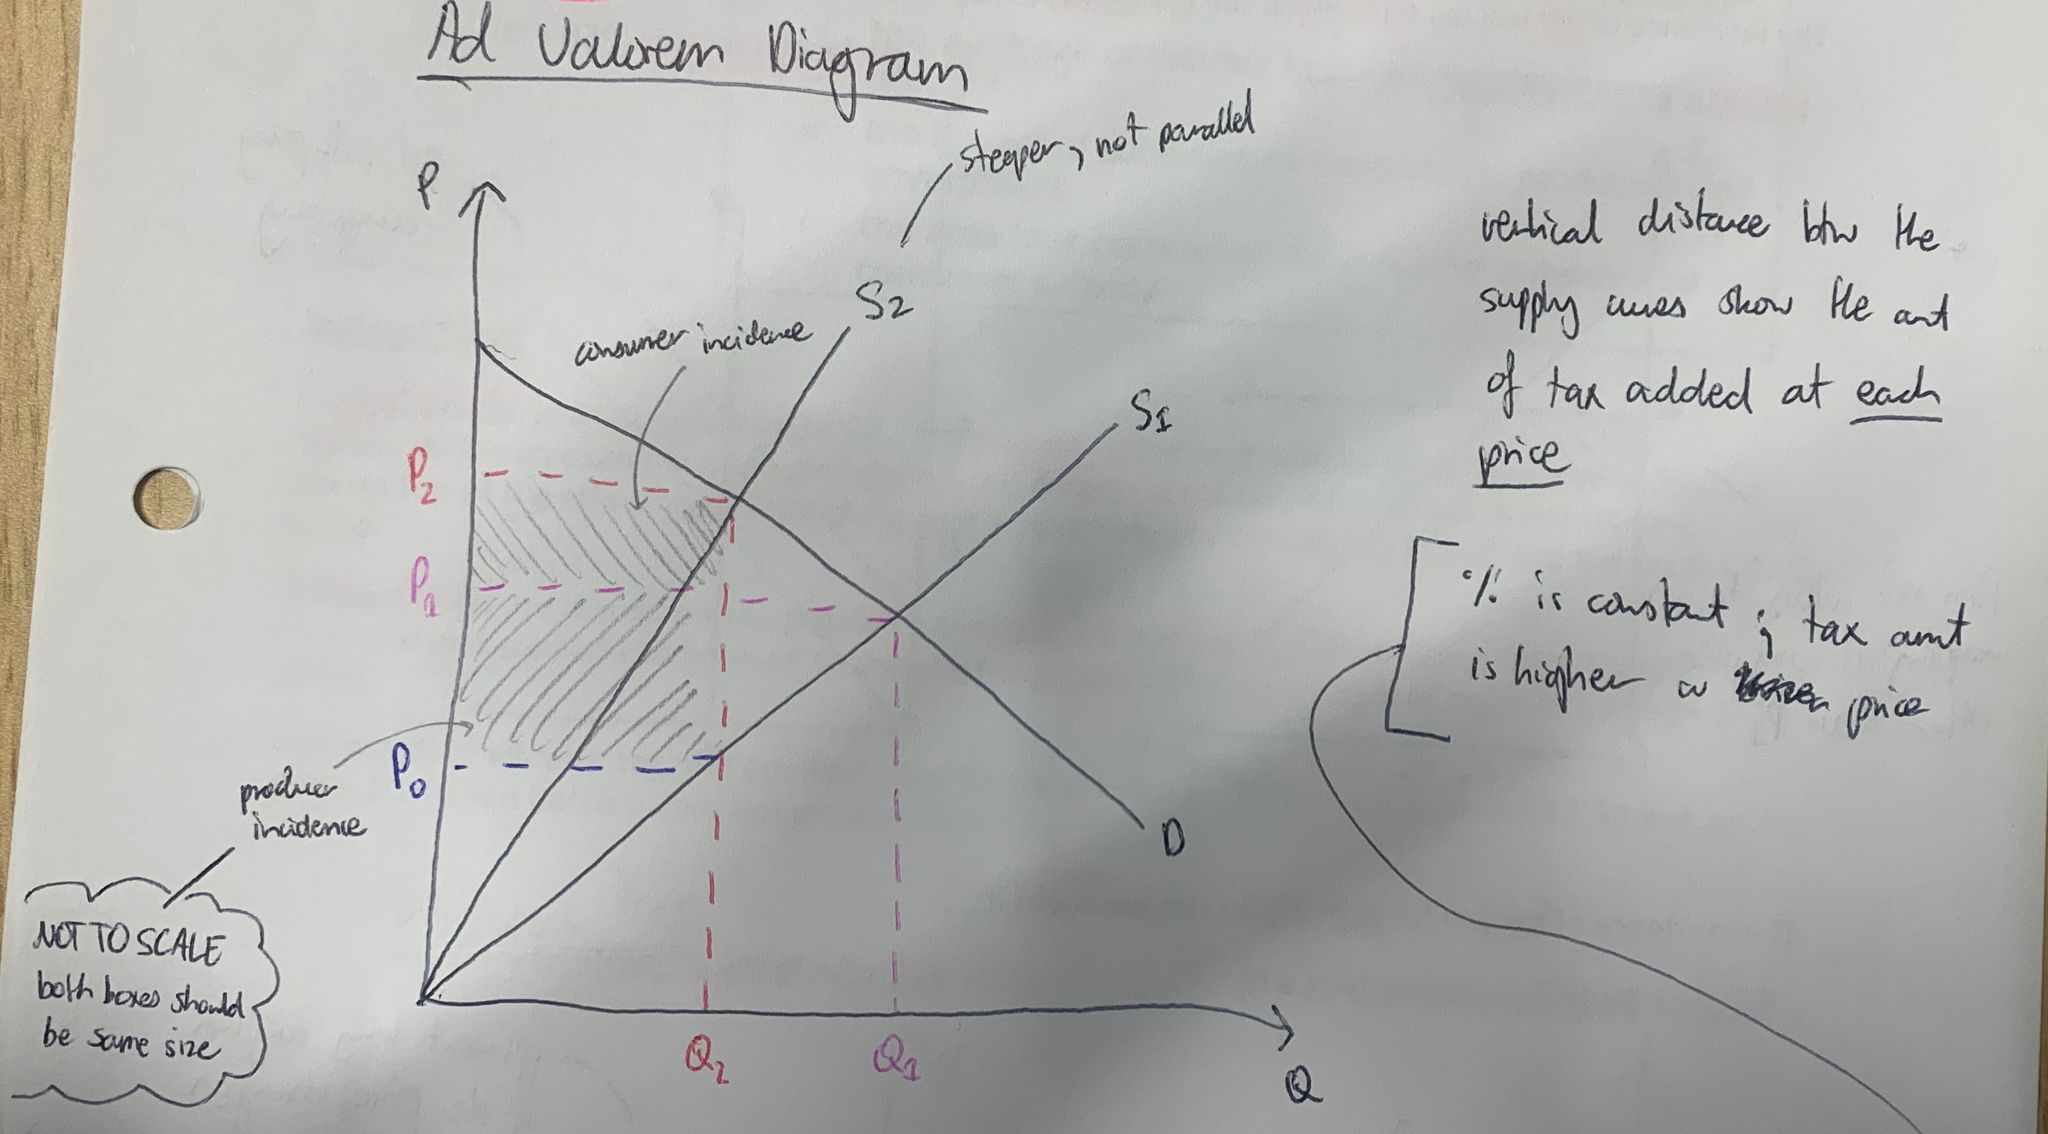 Ad Valorem Diagram
steeper, not parallel
P
S2
consumer incidence
S1
P2
P1
P0
producer
incidence
D
NOT TO SCALE
both boxes should
be same size
Q2
Q1
Q
vertical distance btw the
supply curves show the amt
of tax added at each
price
% is constant ; tax amt
is higher price